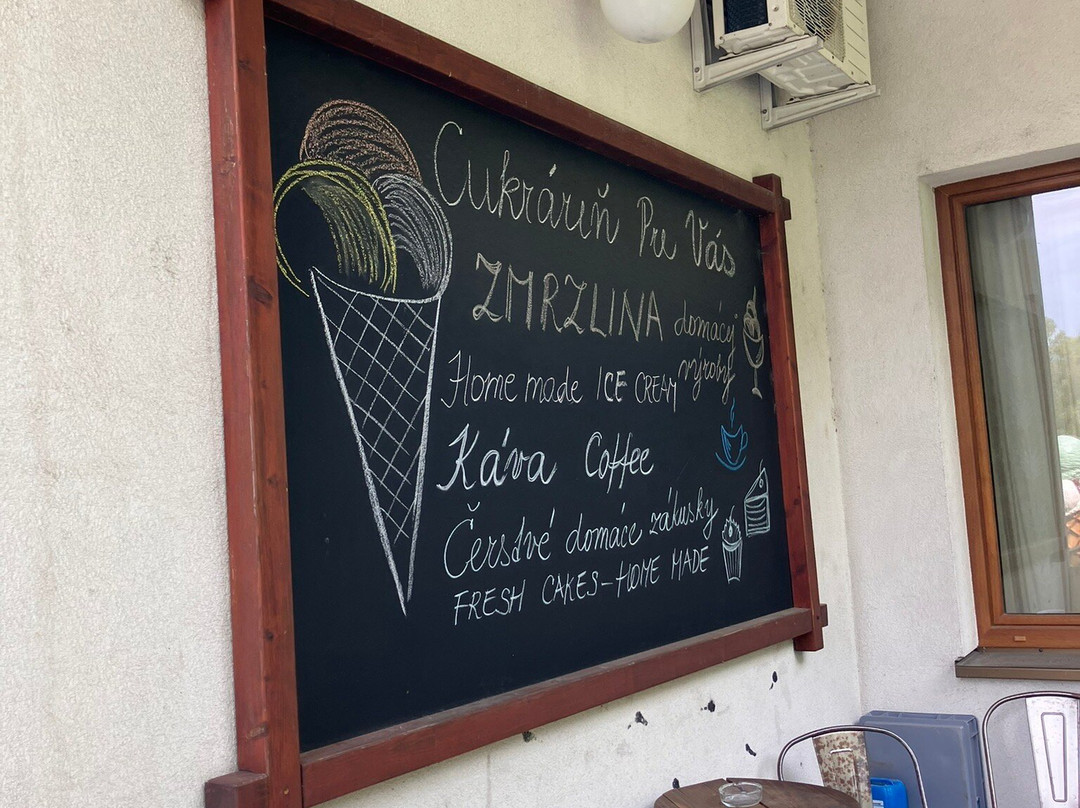 Cukráriň Pre Vás
ZMRZLINA domácej
výroby
Home made ICE CREAM
Káva Coffee
Čerstvé domáce zákusky
FRESH CAKES-HOME MADE